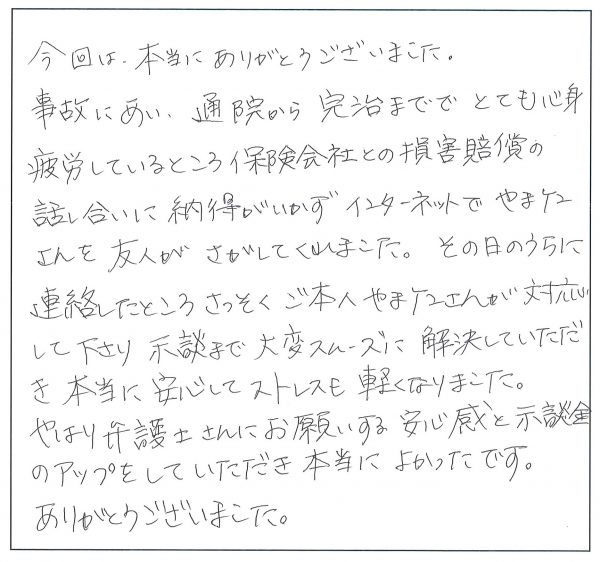 今回は、本当にありがとうございました。
事故にあい、通院から完治まででとても心身
疲労しているところ保険会社との損害賠償の
話し合いに納得がいかずインターネットでやまケン
さんを友人がさがしてくれました。その日のうちに
連絡したところさっそくご本人やまケンさんが対応
して下さり示談まで大変スムーズに解決していただ
き本当に安心してストレスも軽くなりました。
やはり弁護士さんにお願いする安心感と示談金
のアップをしていただき本当によかったです。
ありがとうございました。